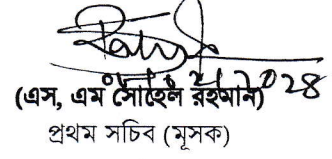 (এস, এম সোহেল রহমান)
প্রথম সচিব (মূসক)